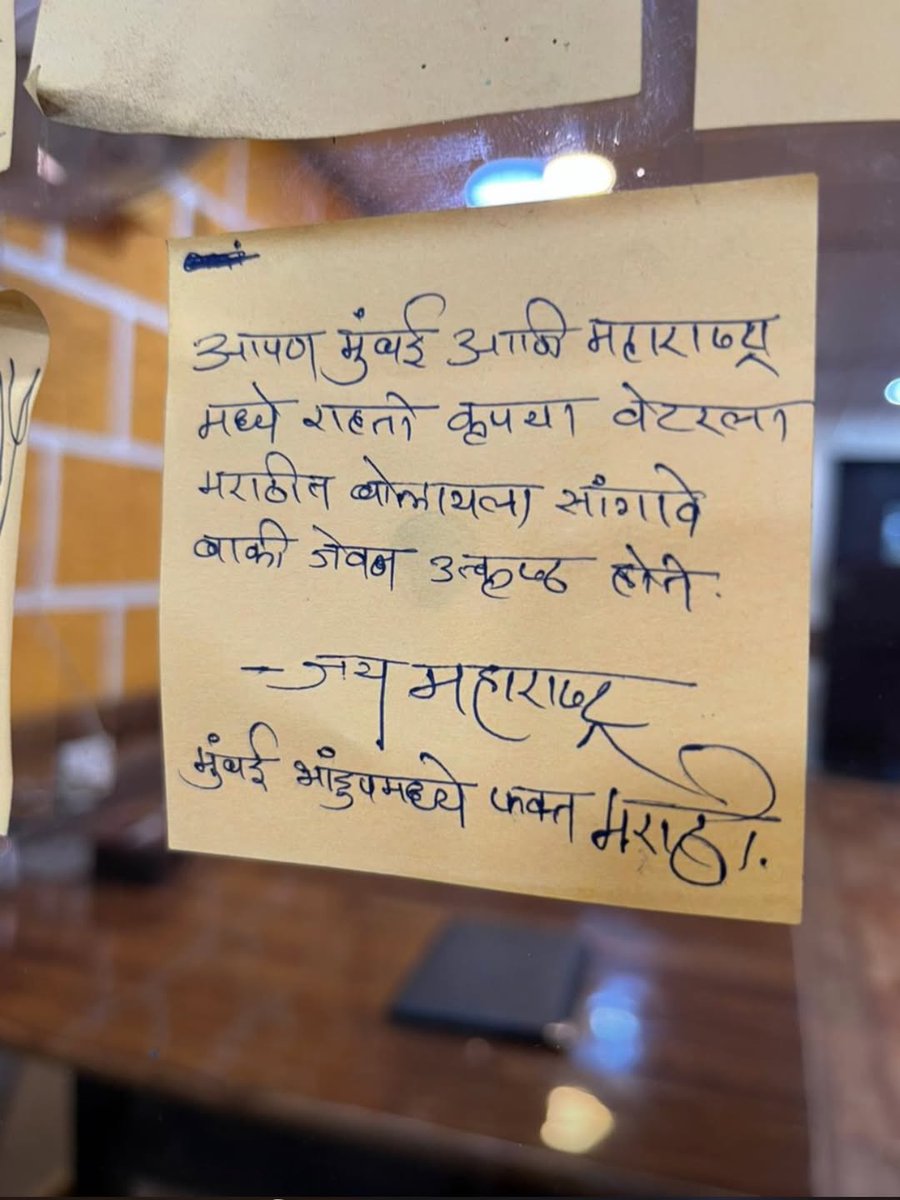 आपण मुंबई आणि महाराष्ट्र
मध्ये राहतो कृपया वेटरला
मराठीत बोलायला सांगावे
बाकी जेवन उत्कृष्ठ होते.
- जय महाराष्ट्र
मुंबई भांडुपमध्ये फक्त मराठी.